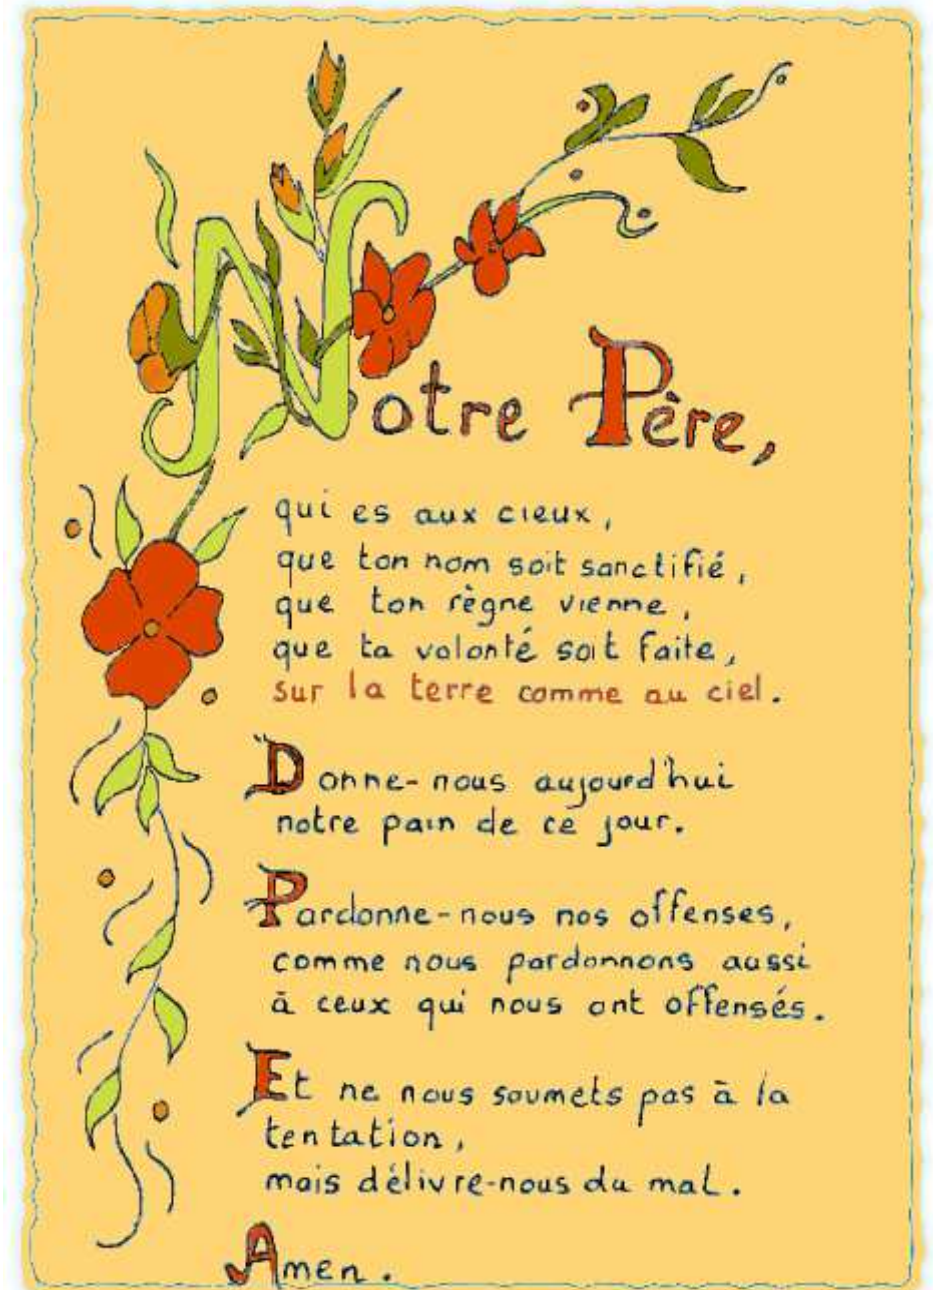 Notre Père,
qui es aux cieux,
que ton nom soit sanctifié,
que ton règne vienne,
que ta volonté soit faite,
sur la terre comme au ciel.
Donne-nous aujourd'hui
notre pain de ce jour.
Pardonne-nous nos offenses,
comme nous pardonnons aussi
à ceux qui nous ont offensés.
Et ne nous soumets pas à la
tentation,
mais délivre-nous du mal.
Amen.